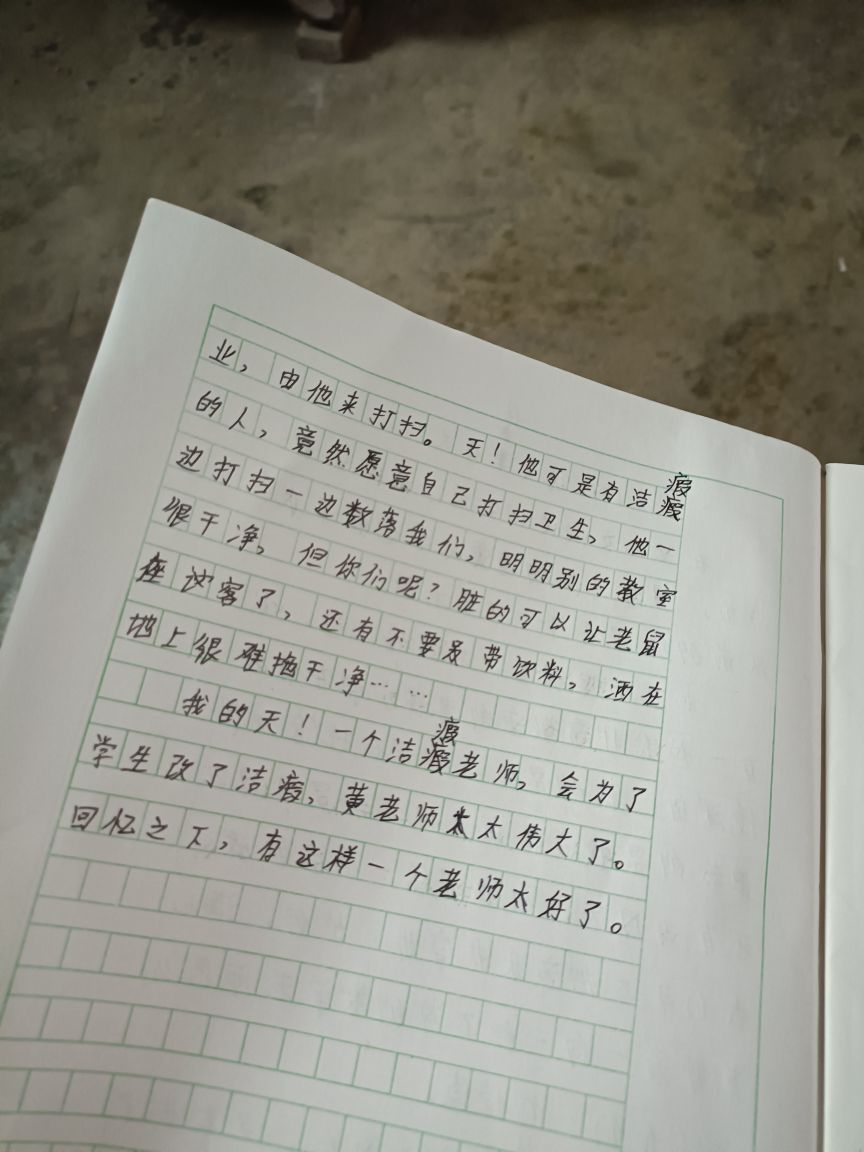 业，由他来打扫。天！他可是有洁瘕
的人，竟然愿意自己打扫卫生，他一
边打扫一边数落我们，明明别的教室
很干净，但你们呢？脏的可以让老鼠
座谈客了，还有不要及带饮料，洒在
地上很难拖干净……
我的天！一个洁瘕老师，会为了
学生改了洁瘕，黄老师太太伟大了。
回忆之下，有这样一个老师太好了。